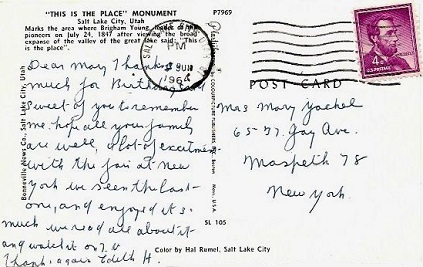 "THIS IS THE PLACE" MONUMENT
P7969
Salt Lake City, Utah
Marks the area where Brigham Young, leader of the
pioneers on July 24, 1847 after viewing the broad
expanse of the valley of the great lake said: "This
is the place".
SALT LAKE
PM
JUN
1964
4¢
U.S. POSTAGE
POST CARD
Dear Mary Thanks so
much for Birthday card
sweet of you to remember
me. hope all your family
are well, a lot of excitement
with the fair at New
York we seen the last
one, and enjoyed it so
much we read all about it
and watch it on T.V
Thanks again Edith H.
Mrs Mary Yachel
65-37 Jay Ave.
Maspeth 78
New York.
Bonneville News Co., Salt Lake City, Utah
SL 105
Color by Hal Rumel, Salt Lake City